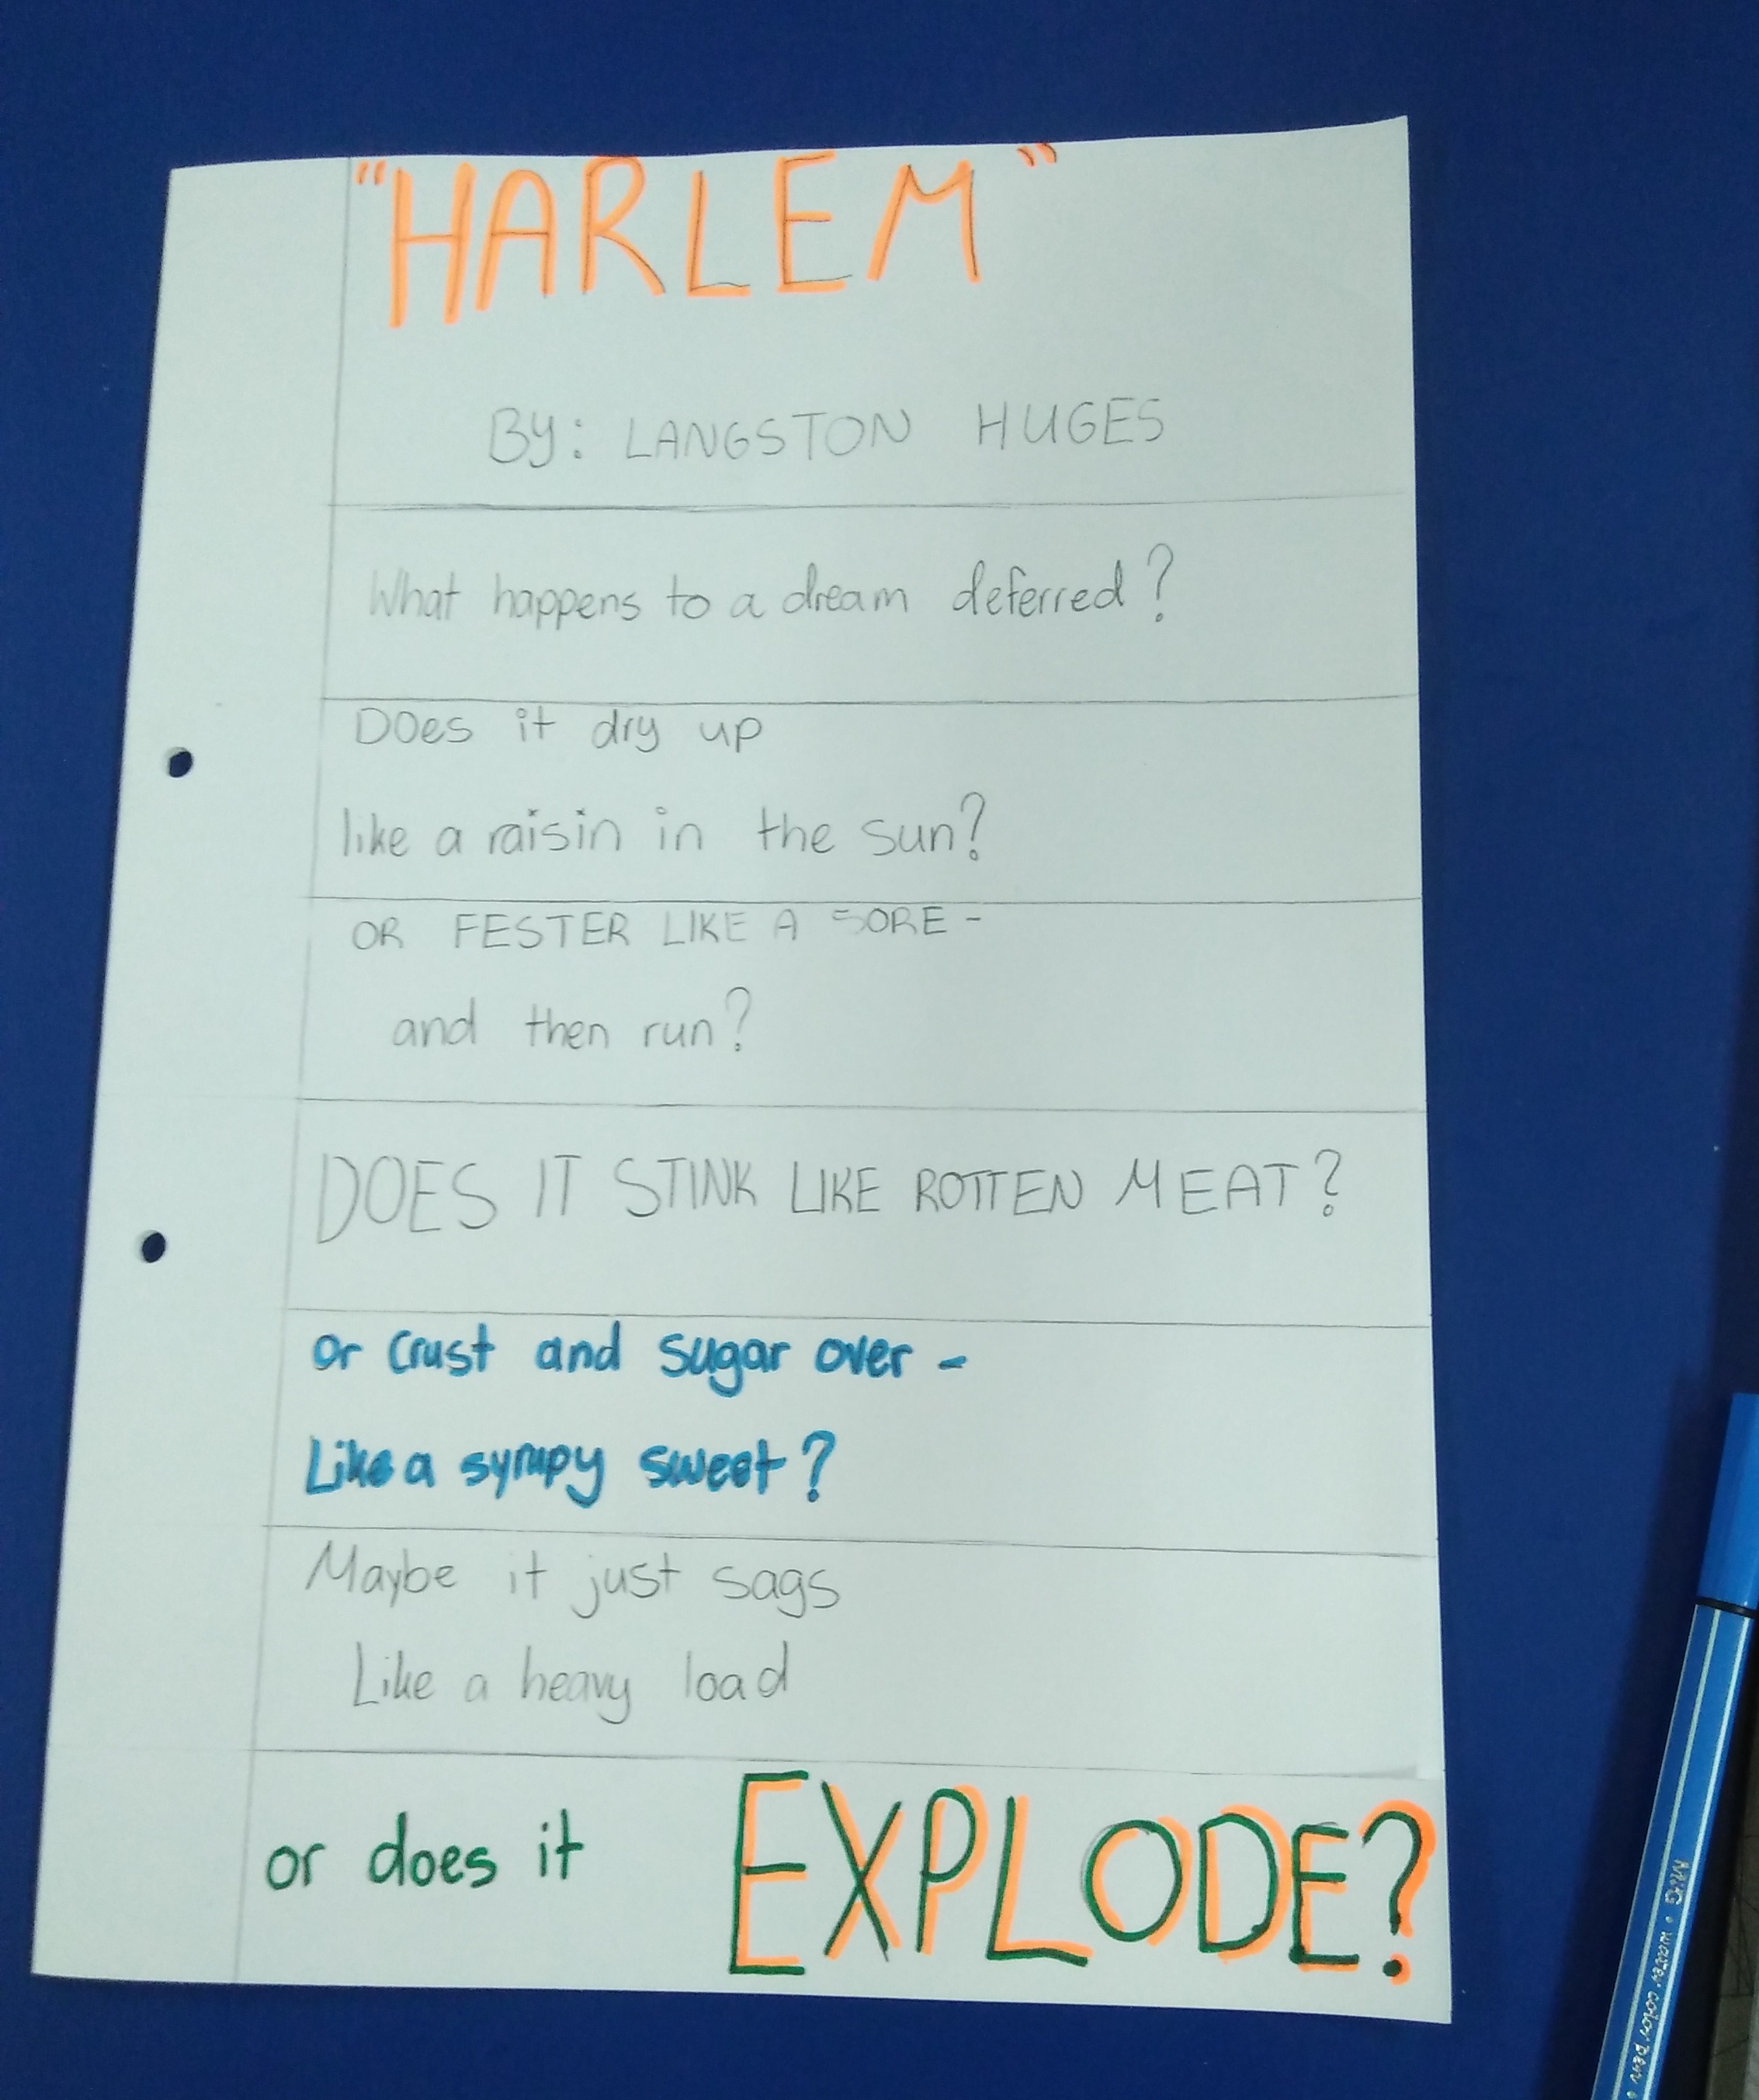 "HARLEM"
BY: LANGSTON HUGES
What happens to a dream deferred?
Does it dry up
like a raisin in the sun?
OR FESTER LIKE A SORE -
and then run?
DOES IT STINK LIKE ROTTEN MEAT?
or crust and sugar over -
Like a syrupy sweet?
Maybe it just sags
Like a heavy load
or does it EXPLODE?
water color pen